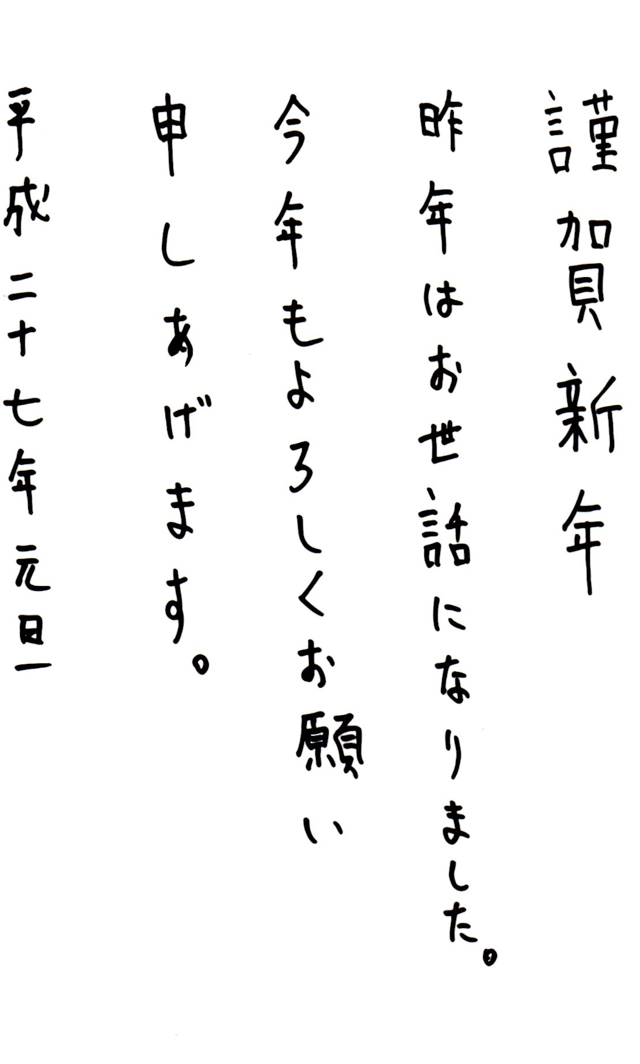 謹賀新年
昨年はお世話になりました。
今年もよろしくお願い
申しあげます。
平成二十七年元旦